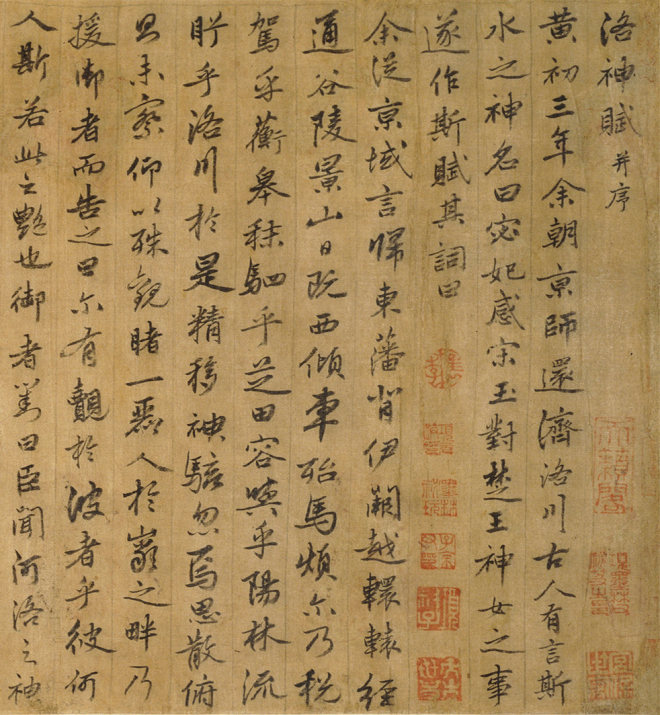 洛神賦 并序
黄初三年余朝京師還濟洛川古人有言斯
水之神名曰宓妃感宋玉對楚王神女之事
遂作斯賦其詞曰
余從京域言歸東藩背伊闕越轘轅經
通谷陵景山日既西傾車殆馬煩尔乃税
駕乎蘅皋秣駟乎芝田容與乎陽林流
眄乎洛川於是精移神駭忽焉思散俯
則未察仰以殊觀睹一麗人於巖之畔乃
援御者而告之曰尔有覿於彼者乎彼何
人斯若此之艷也御者對曰臣聞河洛之神